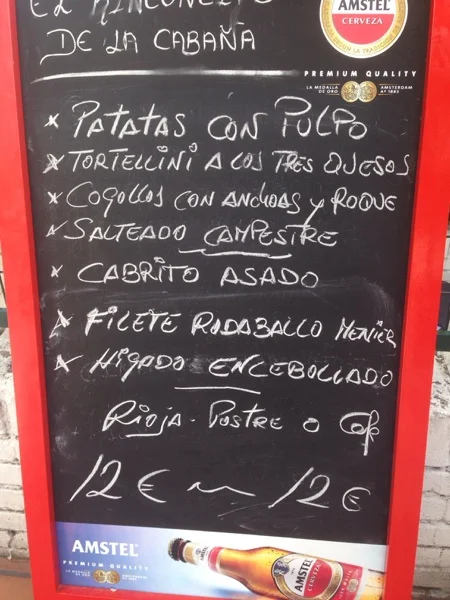 EL RINCONCITO
DE LA CABAÑA
AMSTEL
CERVEZA
PREMIUM QUALITY
LA MEDALLA DE ORO
AMSTERDAM Aº 1883
* PATATAS CON PULPO
* TORTELLINI A LOS TRES QUESOS
* COGOLLOS CON ANCHOAS y ROQUE
* SALTEADO CAMPESTRE
* CABRITO ASADO
* FILETE RODABALLO MENIER
* HIGADO ENCEBOLLADO
RIOJA - POSTRE O Café
12 € ~ 12 €
AMSTEL
PREMIUM QUALITY
AMSTEL
CERVEZA